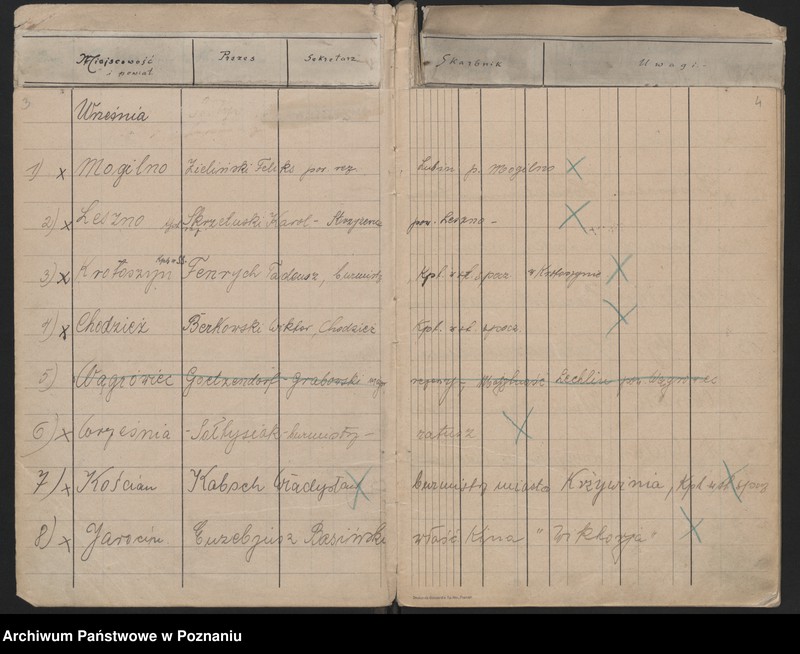 Miejscowość i powiat Prezes Sekretarz Skarbnik Uwagi
3 4
Września
1) x Mogilno Zieliński Feliks por. rez. Lubin p. Mogilno x
2) x Leszno Skrzetuski Karol - pow. Leszno - x
3) x Krotoszyn Fenrych Tadeusz, burmistrz Kpt. w st. spocz. w Krotoszynie x
4) x Chodzież Berkowski Wiktor, Chodzież Kpt. w st. spocz. x
5) Wągrowiec Goetzendorf-Grabowski Lechlin pow. Wągrowiec
6) x Września - Sołtysiak - burmistrz - ratusz x
7) x Kościan Kabsch Władysław x burmistrz miasta Krzywinia, Kpt. w st. spocz.
8) x Jarocin Euzebjusz Basiński właśc. Kina "Wiktorja" x
Archiwum Państwowe w Poznaniu